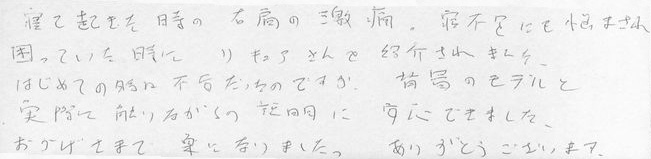 寝て起きた時の右肩の激痛。寝不足にも悩まされ
困っていた時に リキュアさんを紹介されました。
はじめての為に不安だったのですが、背骨のモデルと
実際に触りながらの説明に安心できました。
おかげさまで 楽になりました。 ありがとうございます。